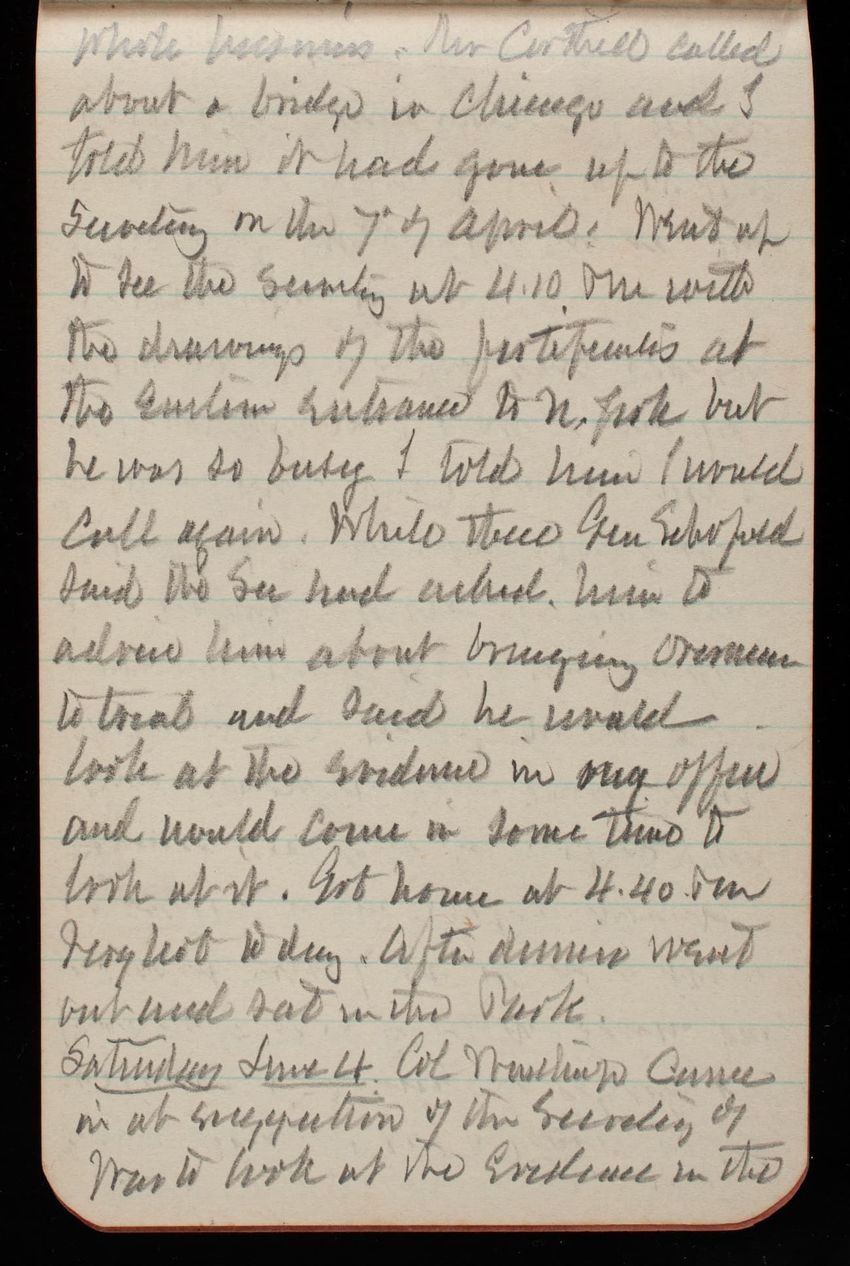 whole business. Mr Corthell called
about a bridge in Chicago and I
told him it had gone up to the
Secretary on the 7th of April. Went up
to see the Secretary at 4.10 PM with
the drawings of the fortifications at
the Eastern Entrance to N. York but
he was so busy I told him I would
call again. While there Gen Schofield
said the Sec had asked him to
advise him about bringing Overman
to trial and said he would
look at the evidence in my office
and would come in some time to
look at it. Got home at 4.40 PM
Very hot to day. After dinner went
out and sat in the Park.
Saturday June 4. Col Winthrop came
in at suggestion of the Secretary of
War to look at the Evidence in the